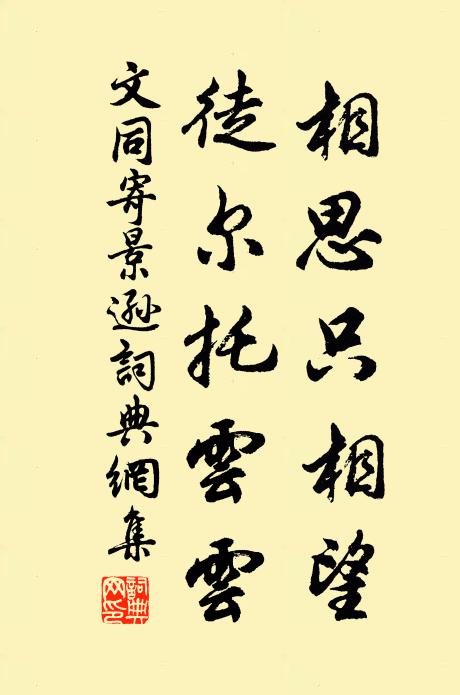 相思只相望
徒尔托雲雲
文同寄景遜詞典網集
詞典网印